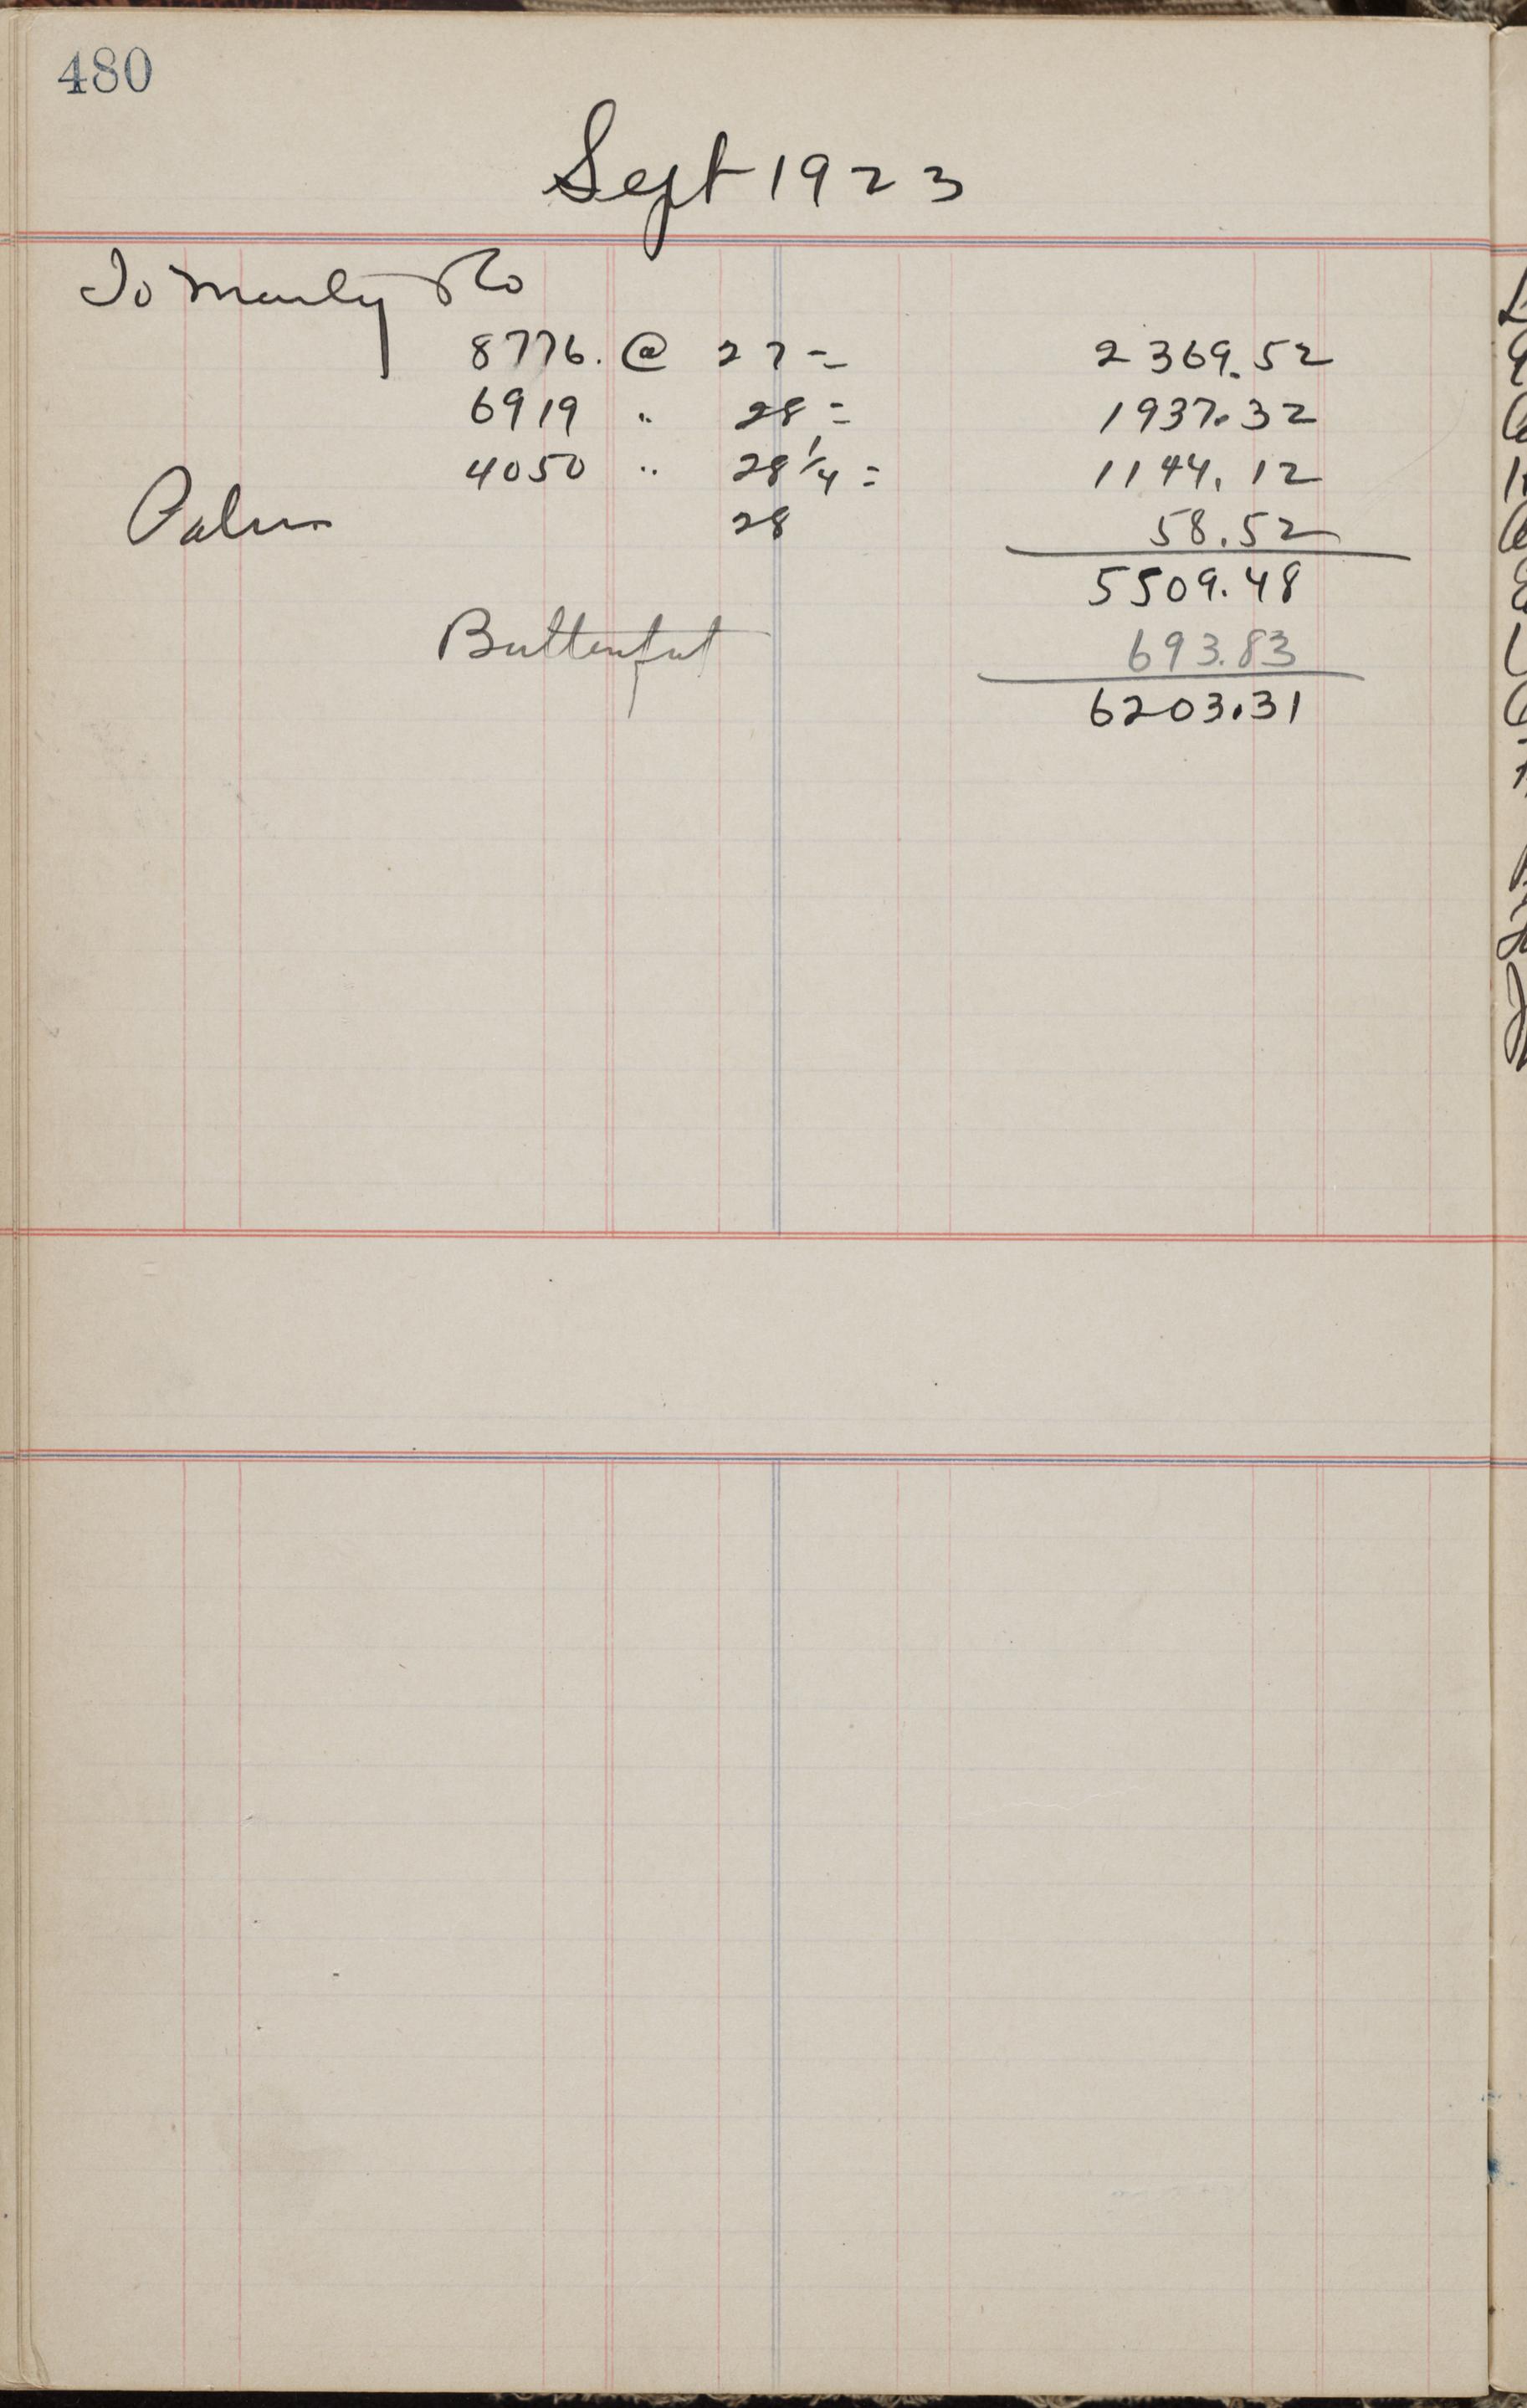 480
Sept 1923
To Manly & Co
8776. @ 27 = 2369.52
6919 " 28 = 1937.32
4050 " 28 1/4 = 1144.12
28 58.52
5509.48
Butterfat 693.83
6203.31